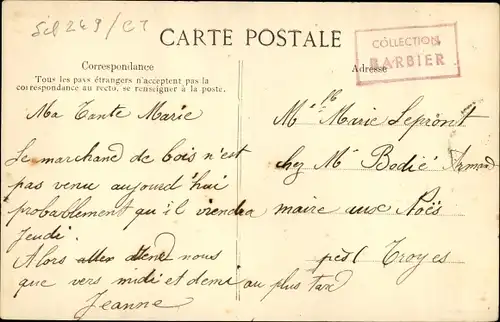 CARTE POSTALE
COLLECTION
BARBIER
Correspondance
Tous les pays étrangers n'acceptent pas la
correspondance au recto, se renseigner à la poste.
Adresse
Ma Tante Marie
Le marchand de bois n'est
pas venu aujourd'hui
probablement qu'il viendra
jeudi.
Alors nous
que vers midi et demi au plus tard
Jeanne
Mlle Marie Lepront
chez Mr Bodié Armand
maire aux Noës
près Troyes